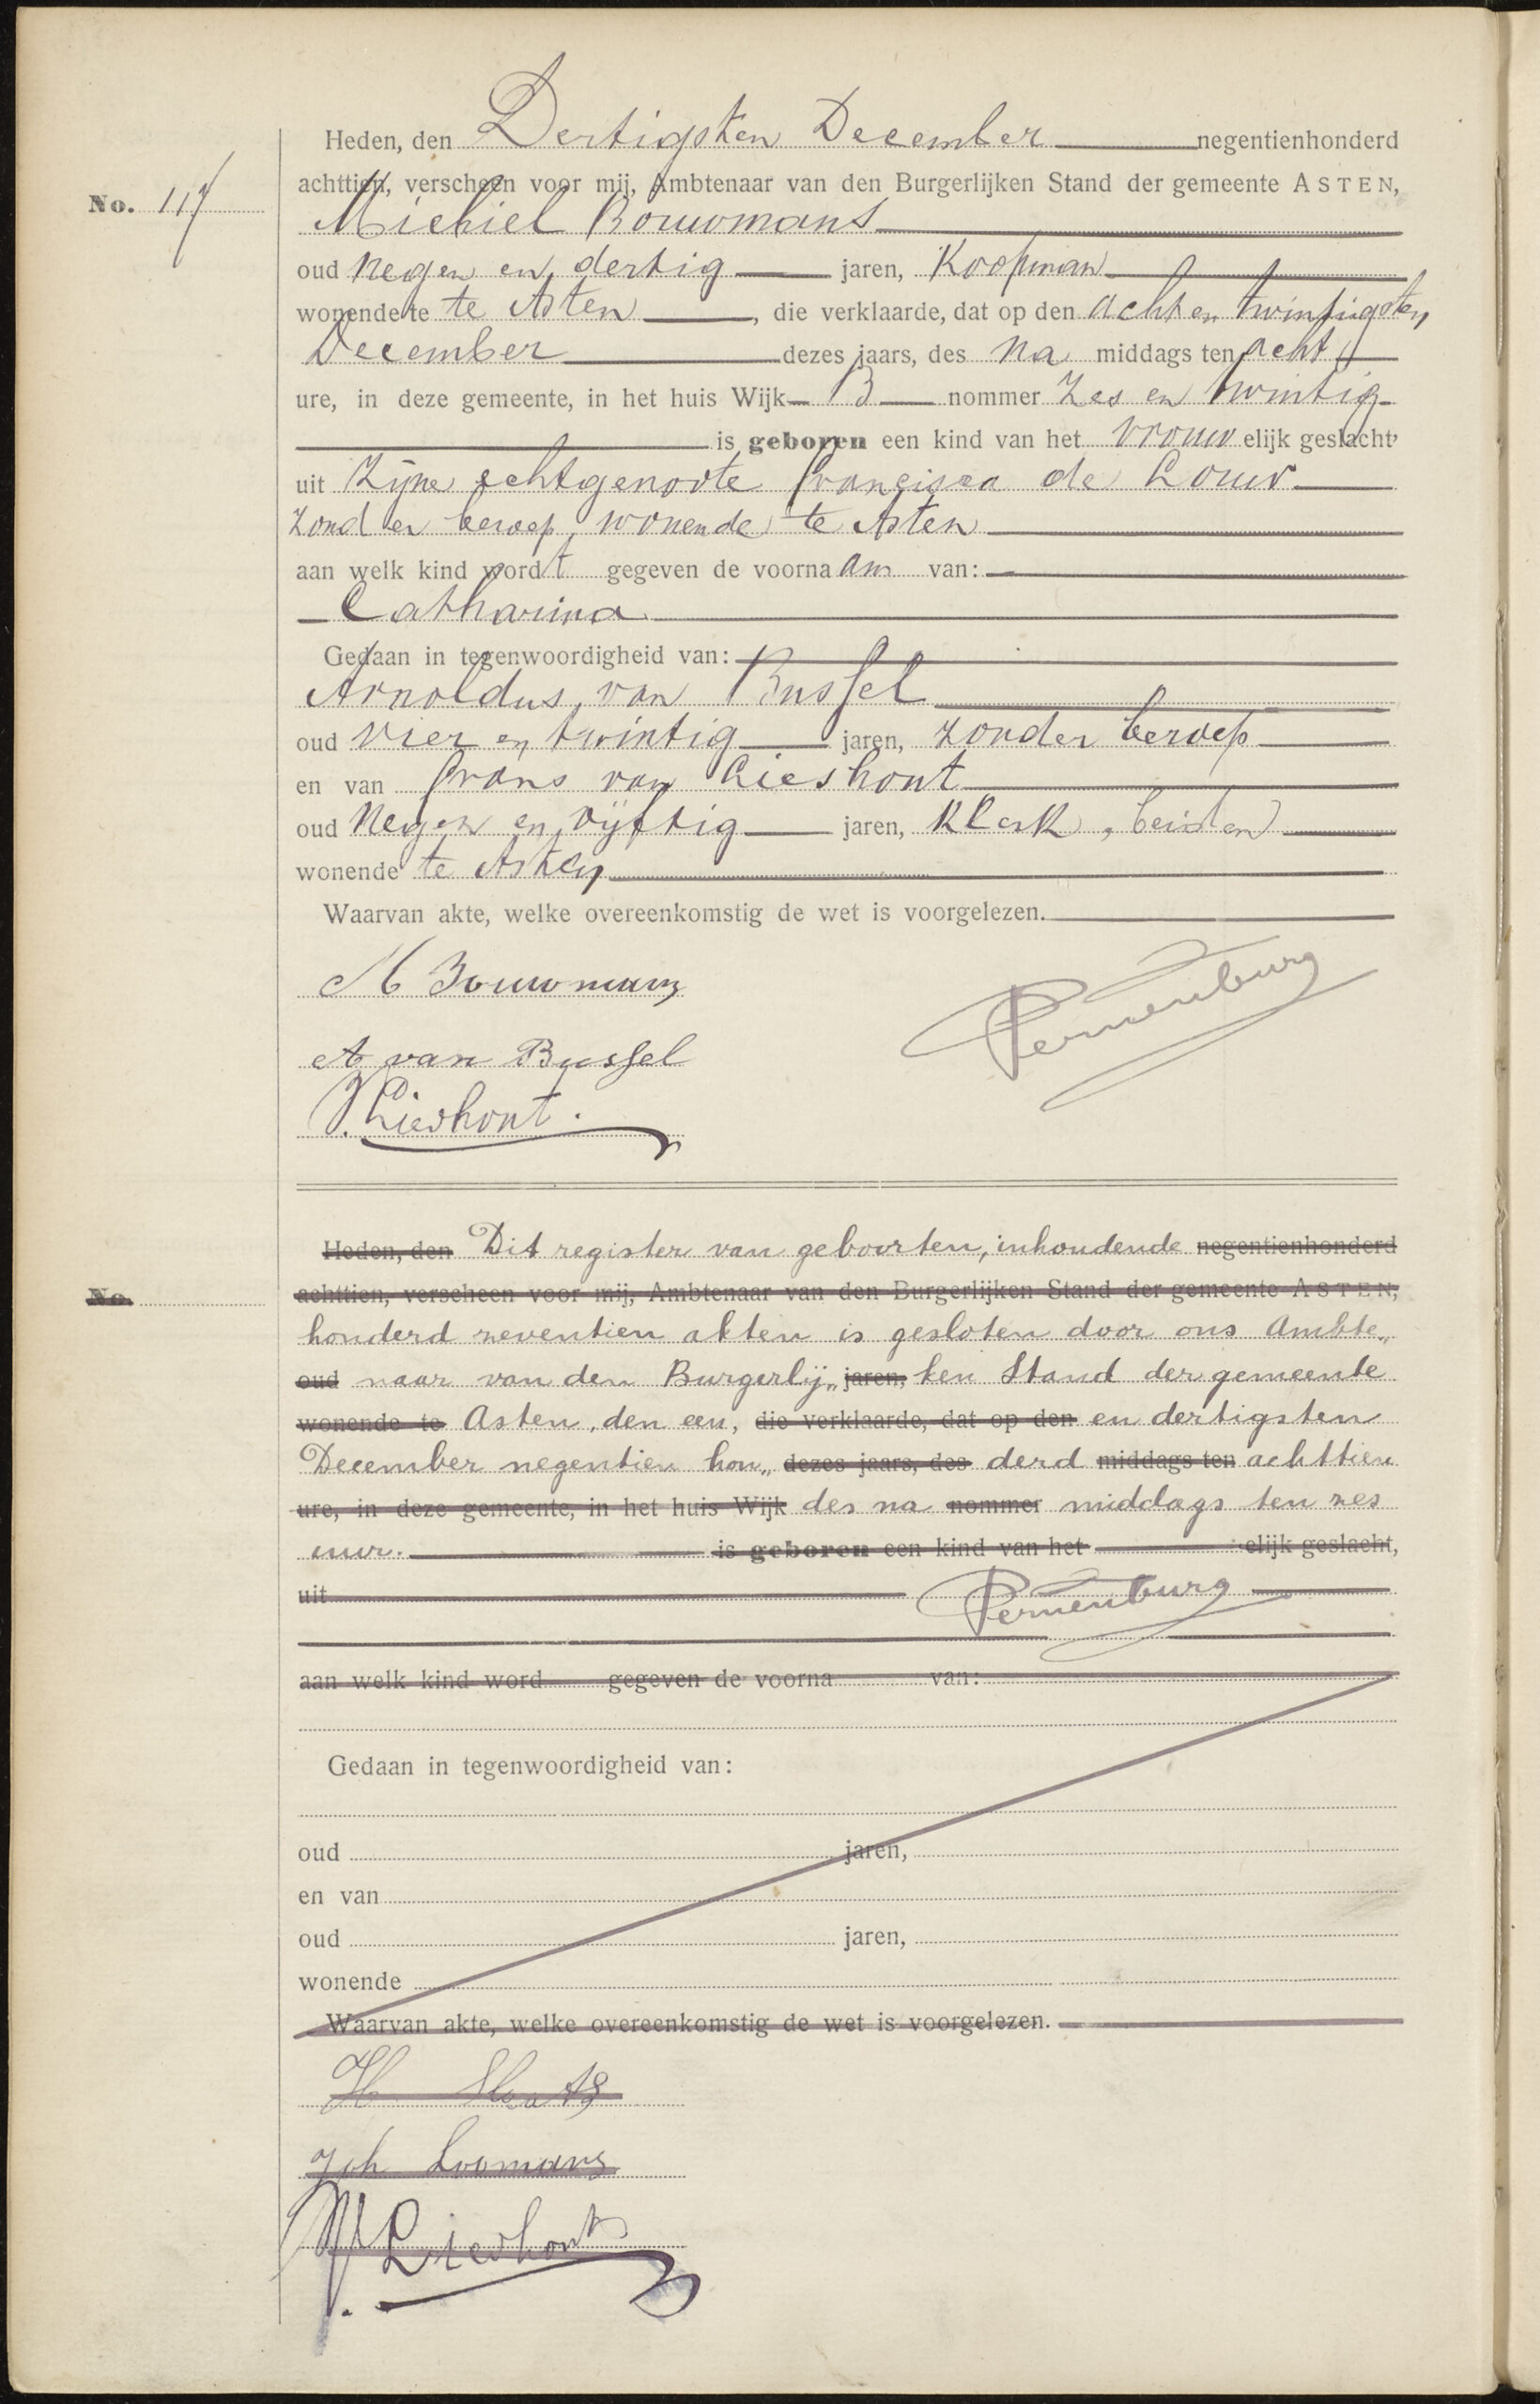 Heden, den Dertigsten December negentienhonderd
achttien, verscheen voor mij, Ambtenaar van den Burgerlijken Stand der gemeente ASTEN,
No. 117
Michiel Bouwmans
oud negen en dertig jaren, Koopman
wonende te te Asten, die verklaarde, dat op den acht en twintigsten
December dezes jaars, des na middags ten acht
ure, in deze gemeente, in het huis Wijk B nommer zes en twintig
is geboren een kind van het vrouw elijk geslacht,
uit zijne echtgenoote Francisca de Louw
zonder beroep, wonende te Asten
aan welk kind wordt gegeven de voornaam van:
Catharina
Gedaan in tegenwoordigheid van:
Arnoldus van Bussel
oud vier en twintig jaren, zonder beroep
en van Frans van Lieshout
oud negen en vijftig jaren, klerk, beiden
wonende te Asten
Waarvan akte, welke overeenkomstig de wet is voorgelezen.
M Bouwmans
Pernenburg
A van Bussel
F. Lieshout.
Heden, den Dit register van geboorten, inhoudende negentienhonderd
No.
achttien, verscheen voor mij, Ambtenaar van den Burgerlijken Stand der gemeente ASTEN,
honderd zeventien akten is gesloten door ons Ambte„
oud naar van den Burgerlij„ jaren, ken Stand der gemeente
wonende te Asten, den een, die verklaarde, dat op den en dertigsten
December negentien hon„ dezes jaars, des derd middags ten achttien
ure, in deze gemeente, in het huis Wijk des na nommer middags ten zes
uur. is geboren een kind van het elijk geslacht,
uit Pernenburg
aan welk kind word gegeven de voorna van:
Gedaan in tegenwoordigheid van:
oud jaren,
en van
oud jaren,
wonende
Waarvan akte, welke overeenkomstig de wet is voorgelezen.
Joh Loomans
Lieshout